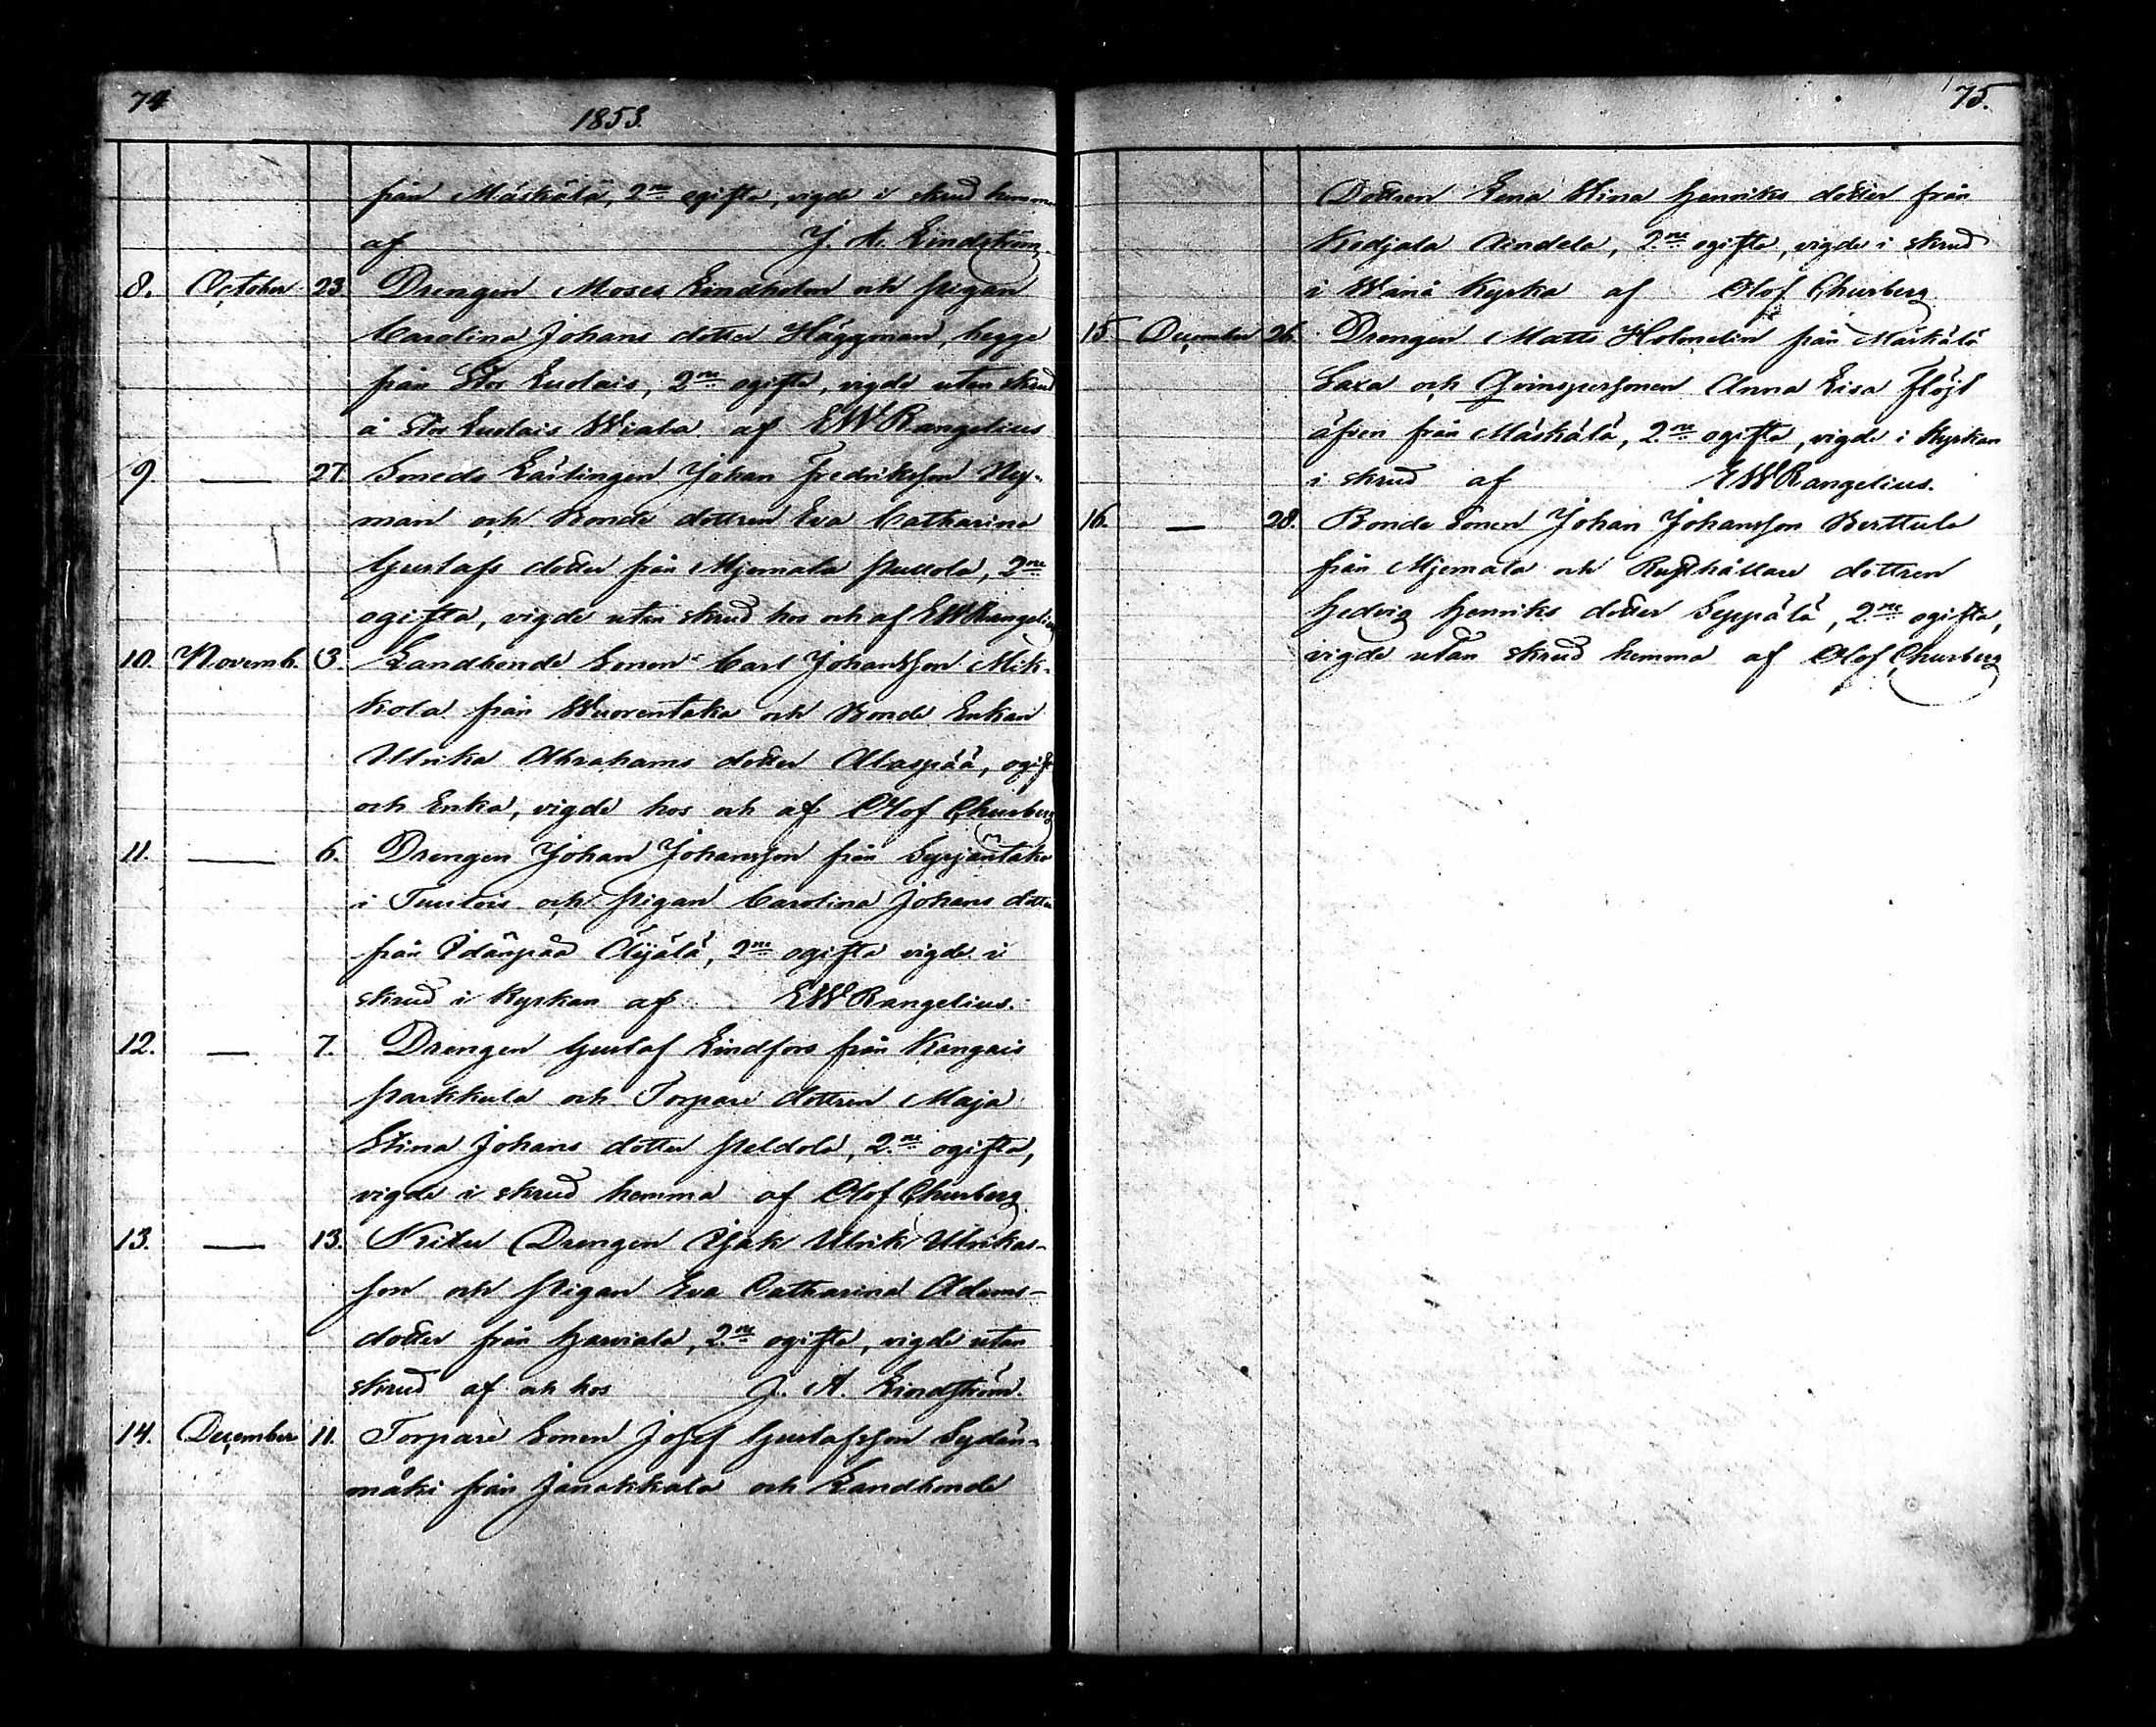 74
1853.
från Måskälä, 2ne ogifte, vigde i skrud hemma
af J. A. Lindström
8. October 23. Drengen Moses Lindholm och pigan
Carolina Johans dotter Häggman, begge
från Stor Luolais, 2ne ogifte, vigde utan skrud
å Stor Luolais Wiala af EWRangelius
9. — 27. Smeds Lärlingen Johan Fredriksson Ny-
man och Bonde dottren Eva Catharina
Gustafs dotter från Mjemala Pullola, 2ne
ogifta, vigde utan skrud hos och af EWRangelius
10. Novemb. 3. Landbonde Sonen Carl Johansson Mik-
kola från Wuorentaka och Bonde Enkan
Ulrika Abrahams dotter Alaspää, ogift
och Enka, vigde hos och af Olof Churberg
11. — 6. Drengen Johan Johansson från Syrjäntaka
i Tuulois och pigan Carolina Johans dotter
från Idänpää Äijälä, 2ne ogifte vigde i
skrud i Kyrkan af EWRangelius.
12. — 7. Drengen Gustaf Lindfors från Kangais
Parkkula och Torpare dottren Maja
Stina Johans dotter Peldola, 2ne ogifta,
vigde i skrud hemma af Olof Churberg
13. — 13. Drengen Isak Ulrik Ulrikas-
son och Pigan Eva Catharina Adams-
dotter från Harviala, 2ne ogifte, vigde utan
skrud af och hos J. A. Lindström.
14. December 11. Torpare Sonen Josef Gustafsson Sydän-
mäki från Janakkala och Landbonde
75.
Dottren Lena Stina Henriks dotter från
Kedjala Aindela, 2ne ogifta, vigde i skrud
i Wånå Kyrka af Olof Churberg
15. December 26. Drengen Matts Holmelin från Måskälä
Saxa och Qvinspersonen Anna Lisa Flöjt
äfven från Måskälä, 2ne ogifte, vigde i Kyrkan
i skrud af EWRangelius.
16. — 28. Bonde Sonen Johan Johansson Berttula
från Mjemala och Rusthållare dottren
Hedvig Henriks dotter Seppälä, 2ne ogifta,
vigde utan skrud hemma af Olof Churberg